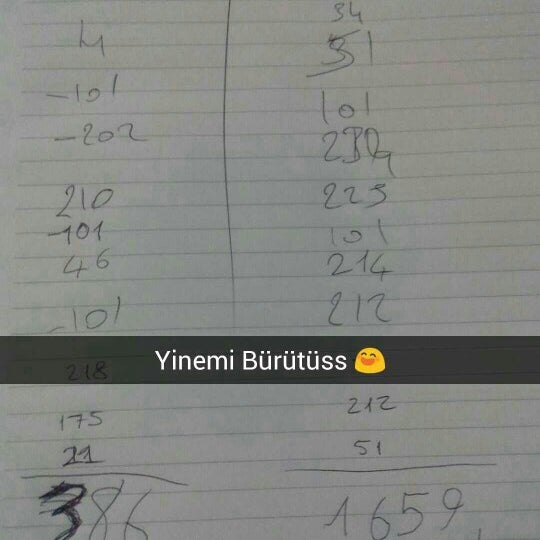 34
4 51
-101 101
-202
210 225
-101 101
46 214
-101 212
Yinemi Bürütüss 😄
218
175 212
21 51
386 1659